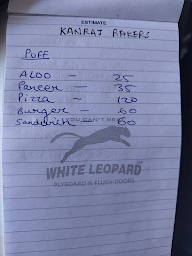 ESTIMATE
KANRAJ BAKERS
PUFF
ALOO - 25
Paneer - 35
Pizza - 120
Burger - 60
Sandwich - 60
YOU CAN'T BE
WHITE LEOPARD
PLYBOARD & FLUSH DOORS